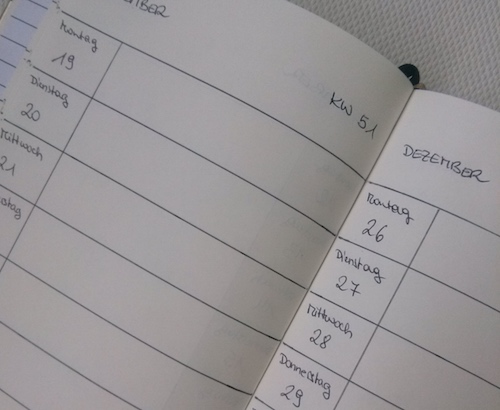 KW 51
Montag
19
Dienstag
20
Mittwoch
21
DEZEMBER
Montag
26
Dienstag
27
Mittwoch
28
Donnerstag
29